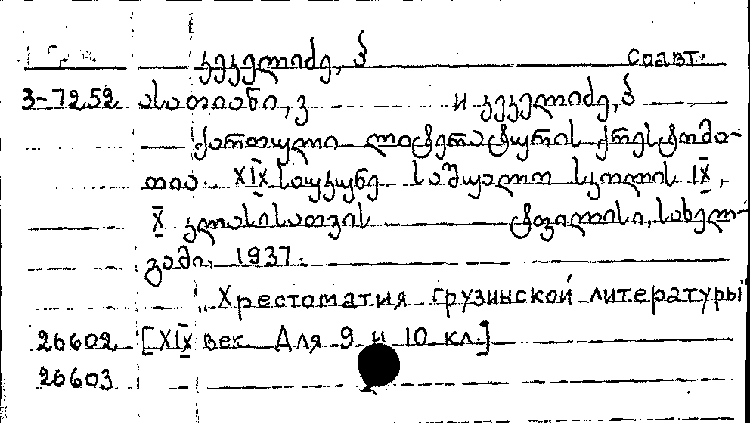 კეკელიძე, კ соавт.
3-7252 ასათიანი, ვ и კეკელიძე, კ
ქართული ლიტერატურის ქრესტომა-
თია. XIX საუკუნე საშუალო სკოლის IX,
X კლასისათვის ტფილისი, სახელ-
გამი, 1937.
„Хрестоматия грузинской литературы"
26602 [XIX век Для 9 и 10 кл.]
26603